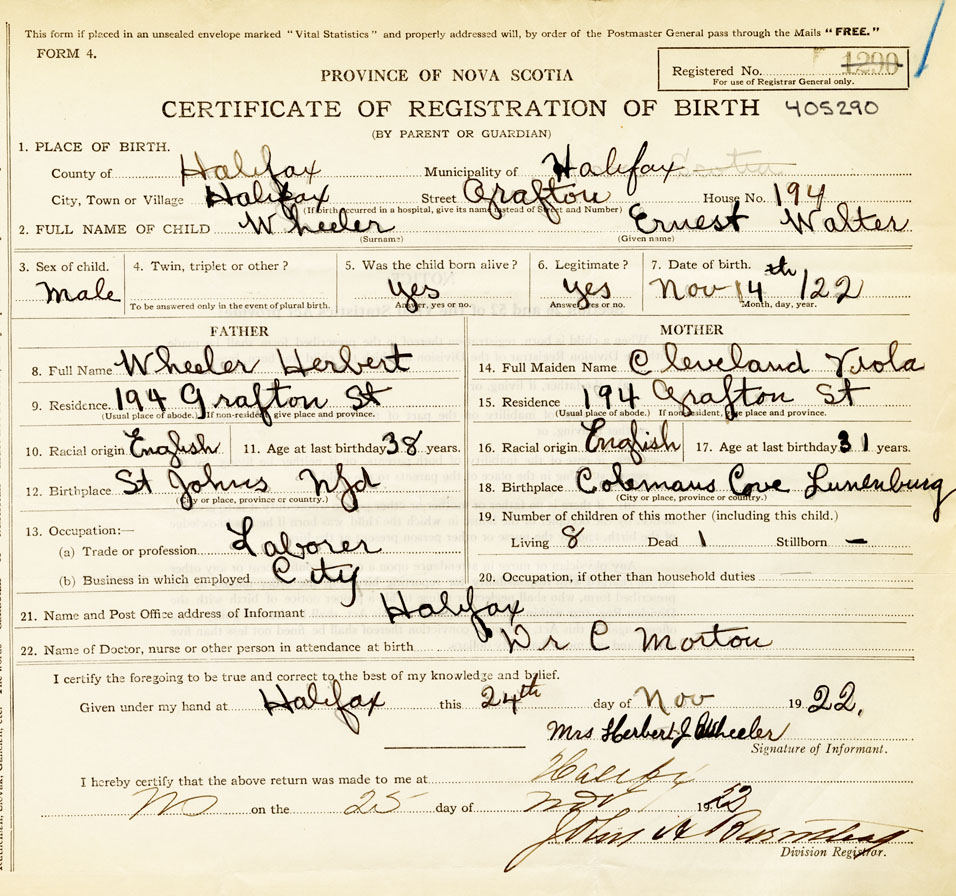 This form if placed in an unsealed envelope marked "Vital Statistics" and properly addressed will, by order of the Postmaster General pass through the Mails "FREE."
FORM 4.
PROVINCE OF NOVA SCOTIA
Registered No. 1290
For use of Registrar General only.
CERTIFICATE OF REGISTRATION OF BIRTH 405290
(BY PARENT OR GUARDIAN)
1. PLACE OF BIRTH.
County of Halifax Municipality of Halifax
City, Town or Village Halifax Street Grafton House No. 194
(If birth occurred in a hospital, give its name instead of Street and Number)
2. FULL NAME OF CHILD Wheeler Ernest Walter
(Surname) (Given name)
3. Sex of child. 4. Twin, triplet or other? 5. Was the child born alive? 6. Legitimate? 7. Date of birth.
Male yes yes Nov 14th /22
To be answered only in the event of plural birth. Answer, yes or no. Answer, yes or no. Month, day, year.
FATHER MOTHER
8. Full Name Wheeler Herbert 14. Full Maiden Name Cleveland Viola
9. Residence. 194 Grafton St 15. Residence 194 Grafton St
(Usual place of abode.) If non-resident, give place and province. (Usual place of abode.) If nonresident, give place and province.
10. Racial origin English 11. Age at last birthday 38 years. 16. Racial origin English 17. Age at last birthday 31 years.
12. Birthplace St Johns Nfd 18. Birthplace Colemans Cove Lunenburg
(City or place, province or country.) (City or place, province or country.)
13. Occupation:— 19. Number of children of this mother (including this child.)
(a) Trade or profession Laborer Living 8 Dead 1 Stillborn —
(b) Business in which employed City 20. Occupation, if other than household duties
21. Name and Post Office address of Informant Halifax
22. Name of Doctor, nurse or other person in attendance at birth Dr C Morton
I certify the foregoing to be true and correct to the best of my knowledge and belief.
Given under my hand at Halifax this 24th day of Nov 1922.
Mrs Herbert J Wheeler
Signature of Informant.
I hereby certify that the above return was made to me at Halifax
NS on the 25 day of Nov 19
John A
Division Registrar.